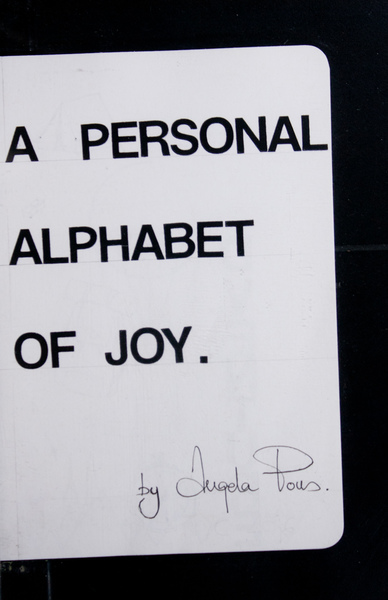 A PERSONAL
ALPHABET
OF JOY.
by Angela Pons.